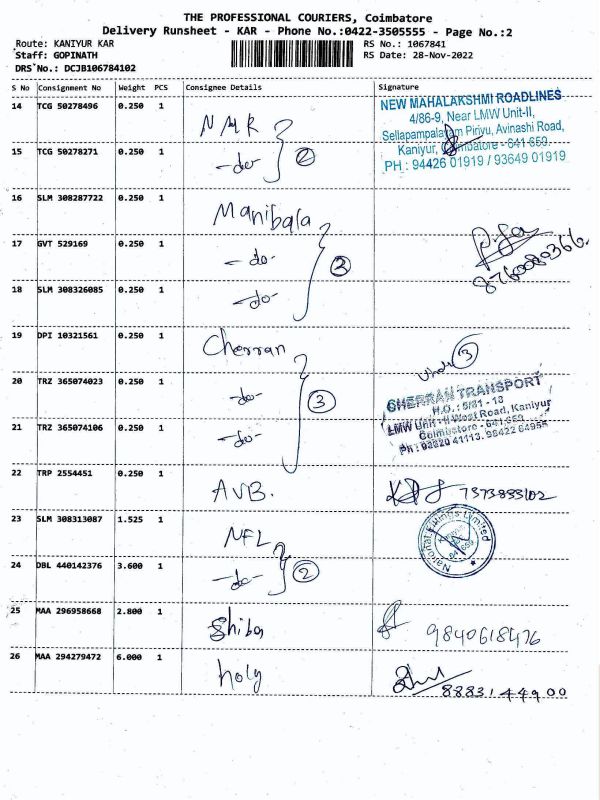 THE PROFESSIONAL COURIERS, Coimbatore
Delivery Runsheet - KAR - Phone No.:0422-3505555 - Page No.:2
Route: KANIYUR KAR RS No.: 1067841
Staff: GOPINATH RS Date: 28-Nov-2022
DRS No.: DCJB106784102
S No Consignment No Weight PCS Consignee Details Signature
14 TCG 50278496 0.250 1 NMR
NEW MAHALAKSHMI ROADLINES
4/86-9, Near LMW Unit-II,
Sellapampalayam Pirivu, Avinashi Road,
Kaniyur, Coimbatore - 641 659.
PH : 94426 01919 / 93649 01919
15 TCG 50278271 0.250 1 -do- 2
16 SLM 308287722 0.250 1 Manibala
17 GVT 529169 0.250 1 -do- 3
18 SLM 308326085 0.250 1 -do-
19 DPI 10321561 0.250 1 Cherran 3
20 TRZ 365074023 0.250 1 -do- 3
CHERRAN TRANSPORT
H.O. : 5/81 - 13
LMW Unit - II West Road, Kaniyur
Coimbatore - 641 659
21 TRZ 365074106 0.250 1 -do-
22 TRP 2554451 0.250 1 AVB. 7373833102
23 SLM 308313087 1.525 1 NFL
National Fittings Limited
24 DBL 440142376 3.600 1 -do- 2
25 MAA 296958668 2.800 1 Shiba 9840618476
26 MAA 294279472 6.000 1 holy 8883144900